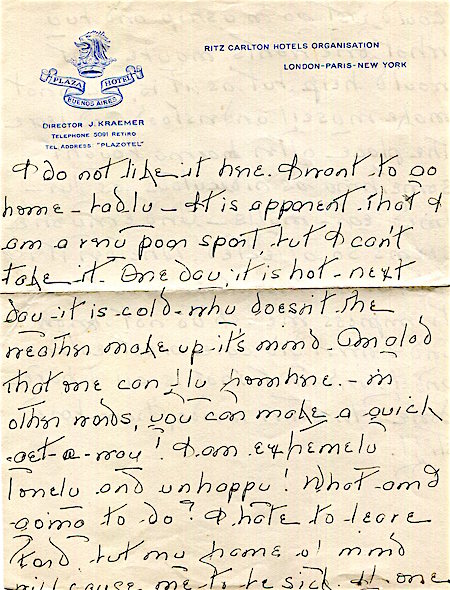 RITZ CARLTON HOTELS ORGANISATION
LONDON-PARIS-NEW YORK
PLAZA HOTEL
BUENOS AIRES
DIRECTOR J. KRAEMER
TELEPHONE 5091 RETIRO
TEL ADDRESS: "PLAZOTEL"
I do not like it here. I want to go
home - badly - It is apparent that I
am a very poor sport, but I can't
take it. One day, it is hot - next
day - it is cold - why doesn't the
weather make up it's mind - Am glad
that one can fly from here. - in
other words, you can make a quick
-get-a-way! I am extremely
lonely and unhappy! What am I
going to do? I hate to leave
but my frame o' mind
will cause me to be sick. If one